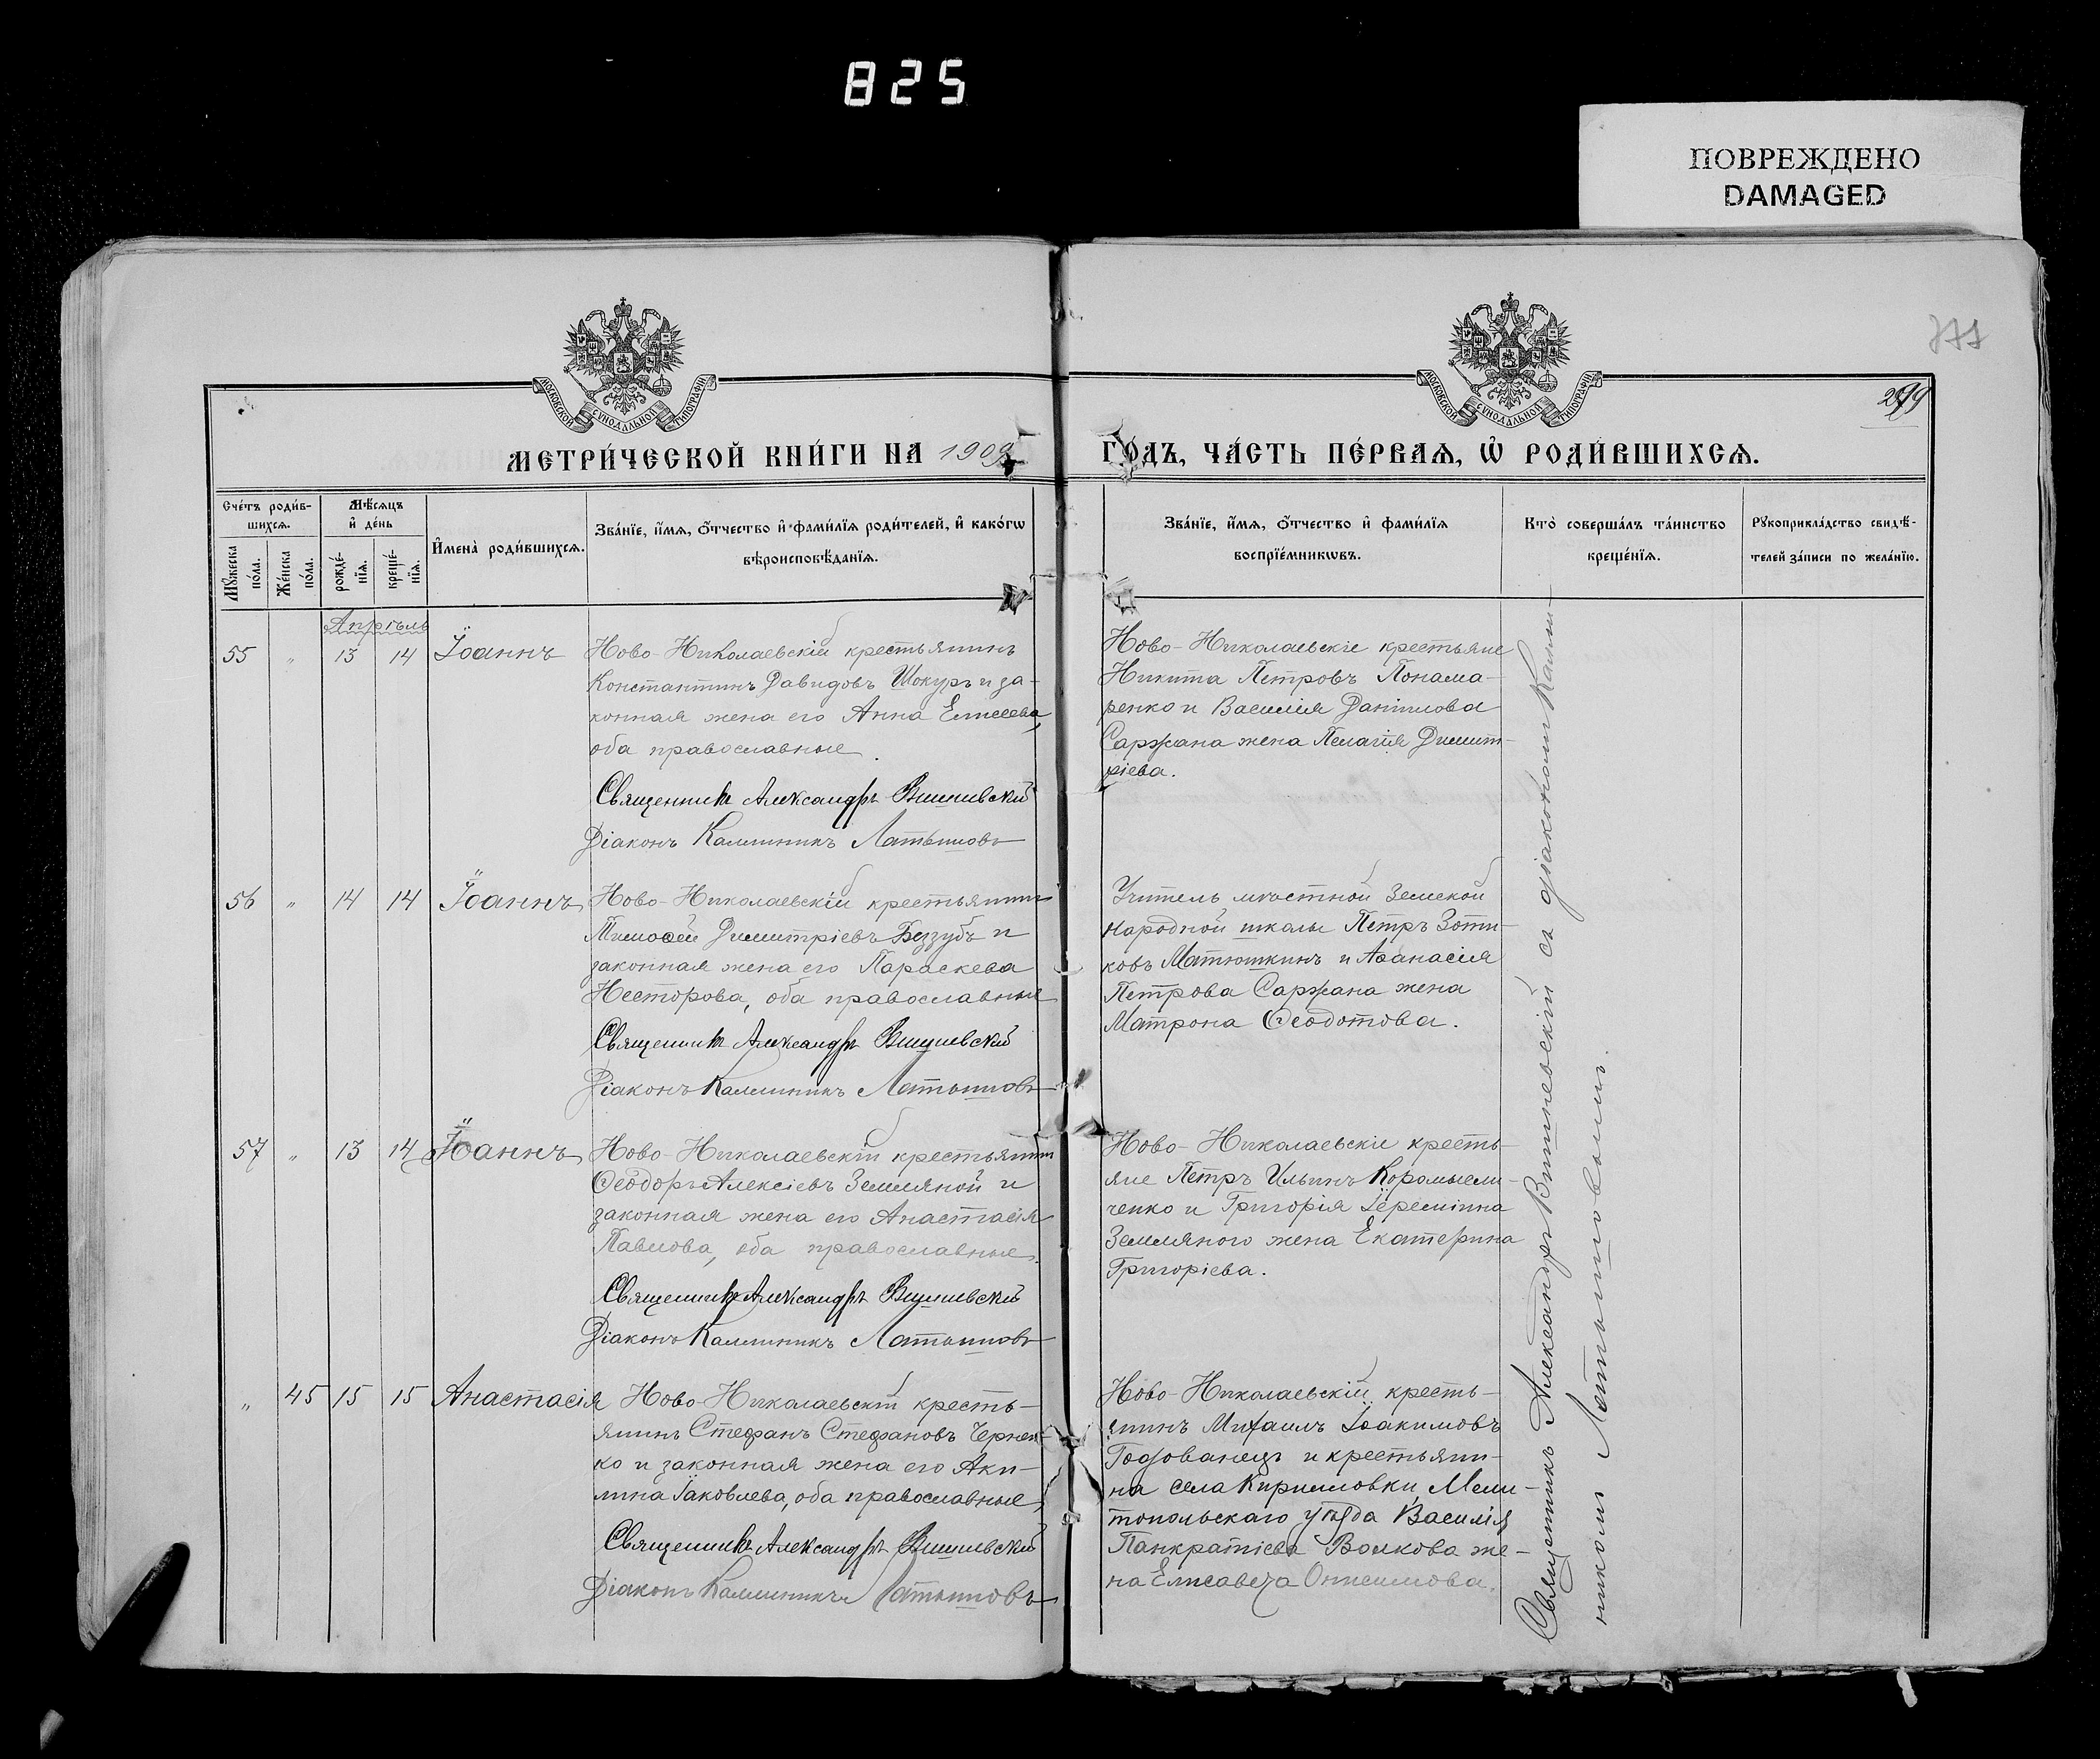 825
ПОВРЕЖДЕНО
DAMAGED
МОСКОВСКОЙ СѴНОДАЛЬНОЙ ТИПОГРАФІИ
МОСКОВСКОЙ СѴНОДАЛЬНОЙ ТИПОГРАФІИ
МЕТРИ́ЧЕСКОЙ КНИ́ГИ НА 1909
ГО́ДЪ, ЧА́СТЬ ПЕ́РВАѦ, Ѡ҆ РОДИ́ВШИХСѦ.
Сче́тъ роди́в-
шихсѧ.
Мꙋ́жеска
по́ла.
Же́нска
по́ла.
Мѣ́сѧцъ
и҆ де́нь
рожде́-
нїѧ.
креще́-
нїѧ.
И҆мена̀ роди́вшихсѧ.
Зва́нїе, и҆́мѧ, ѻ҆́тчество и҆ фами́лїѧ роди́телей, и҆ како́гѡ
вѣроисповѣ́данїѧ.
Зва́нїе, и҆́мѧ, ѻ҆́тчество и҆ фами́лїѧ
воспрїе́мникѡвъ.
Кто̀ соверша́лъ та́инство
креще́нїѧ.
Рꙋкоприкла́дство свидѣ́-
телей за́писи по жела́нїю.
Апрѣль
55 " 13 14 Іоаннъ
Ново-Николаевскій крестьянинъ
Константинъ Давидовъ Шокуръ и за-
конная жена его Анна Елисеева,
оба православные.
Священникъ Александръ Вишневский
Діаконъ Каллиникъ Латышовъ
Ново-Николаевскіе крестьяне
Никита Петровъ Понама-
ренко и Василія Данилова
Саржана жена Пелагія Димит-
ріева.
56 " 14 14 Іоаннъ
Ново-Николаевскій крестьянинъ
Тимоѳей Димитріевъ Беззубъ и
законная жена его Параскева
Несторова, оба православные
Священникъ Александръ Вишневский
Діаконъ Каллиникъ Латышовъ
Учитель мѣстной Земской
народной школы Петръ Зоти-
ковъ Матюшкинъ и Аѳанасія
Петрова Саржана жена
Матрона Ѳеодотова.
57 " 13 14 Іоаннъ
Ново-Николаевскій крестьянинъ
Ѳеодоръ Алексіевъ Земляной и
законная жена его Анастасія
Павлова, оба православные.
Священникъ Александръ Вишневский
Діаконъ Каллиникъ Латышовъ
Ново-Николаевскіе кресть-
яне Петръ Ильинъ Коромысли-
ченко и Григорія Іереміина
Земляного жена Екатерина
Григоріева.
" 45 15 15 Анастасія
Ново-Николаевскій кресть-
янинъ Стефанъ Стефановъ Чернен-
ко и законная жена его Аки-
лина Іаковлева, оба православные,
Священникъ Александръ Вишневский
Діаконъ Каллиникъ Латышовъ
Ново-Николаевскій кресть-
янинъ Михаилъ Іоакимовъ
Годованецъ и крестьяни-
на села Кирилловки, Мели-
топольскаго уѣзда Василія
Панкратіева Волкова же-
на Елисавета Онисимова.
Священникъ Александръ Вишневскій съ діакономъ Калли-
никомъ Латышовомъ.